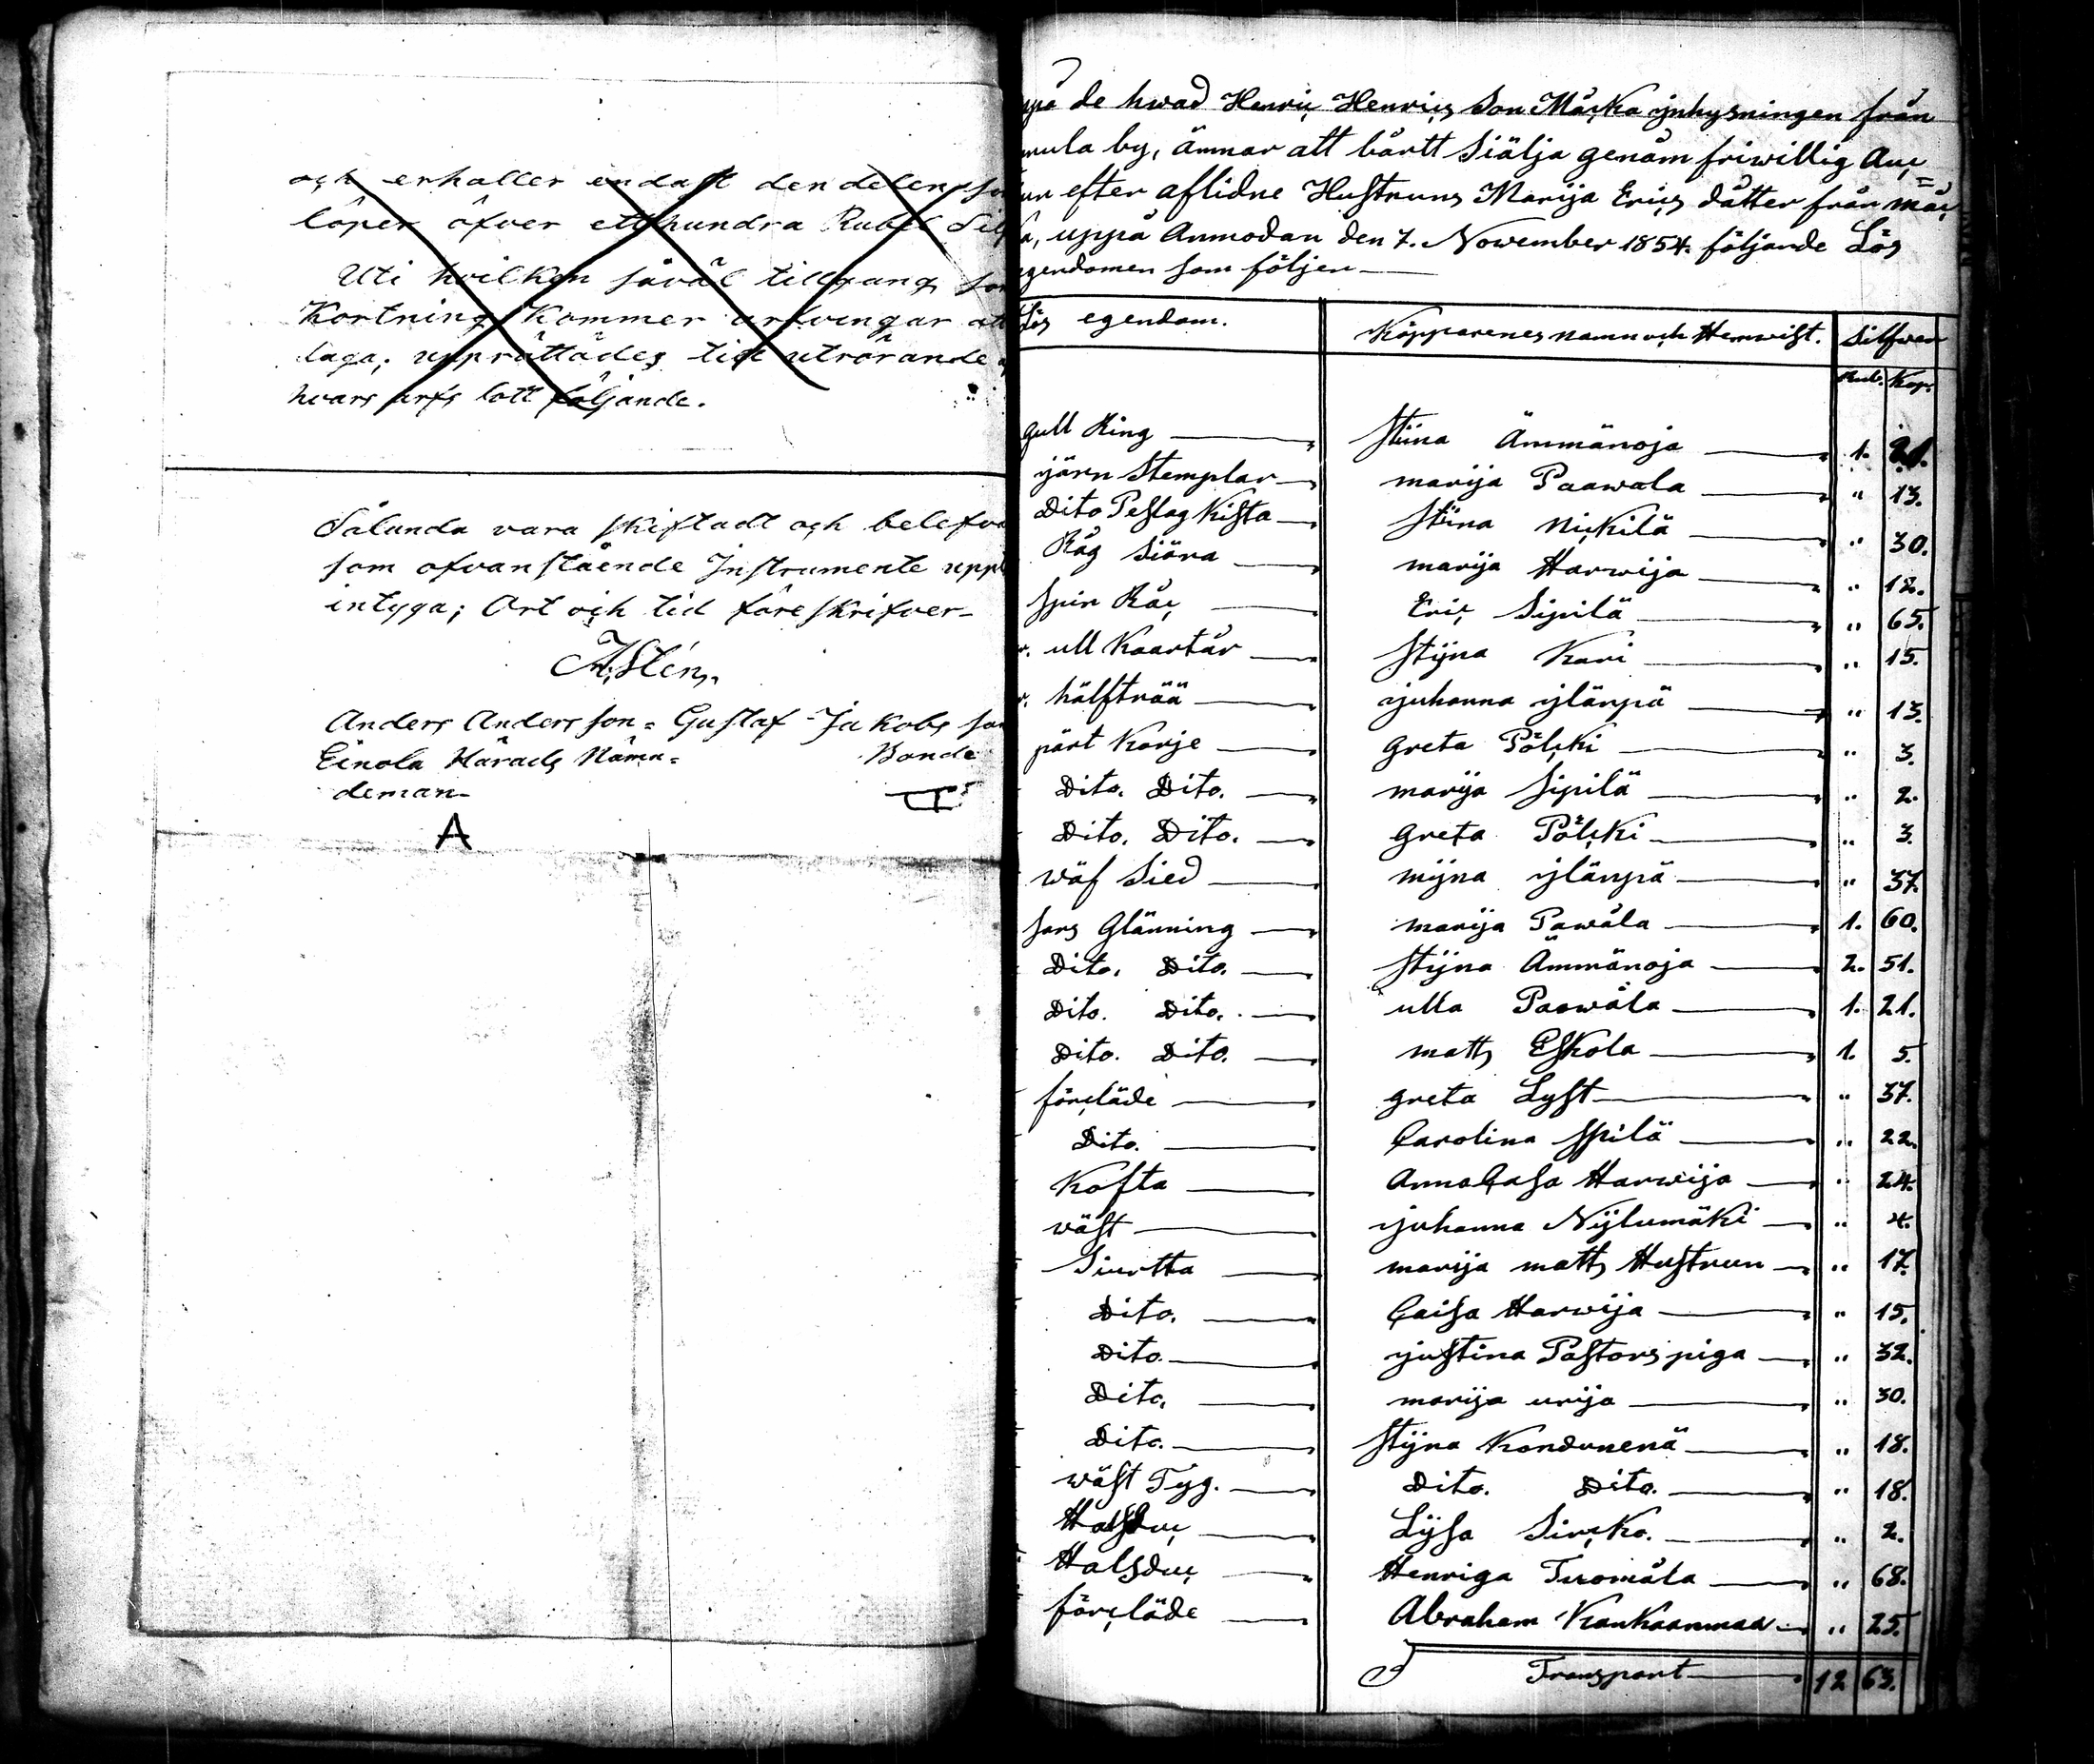 och erhåller endast den delen so
löper öfver ett hundra Rubel Silf
Uti hvilken såväl tillgang so
Kortning Kommer arfvingar att
taga; upprättades till utrörande
hvars arfs lott följande.
Sålunda vara skiftadt och belefva
som ofvanstående Instrumente upp
intyga; Ort och tid föreskrifver_
Anders Andersson = Gustaf Jakobs son
Einola Härads Näm=
deman_
Bonde
A
ppå de hwad Henric Henrics Son Måcka ijnhysningen från
mula by, ämnar att bårtt Siälja genåm friwillig Auc=
un efter aflidne Hustruns Marija Erics dåtter från måc
a, uppå Anmodan den 7. November 1854. följande Lös
egendomen som följer
Lös egendom. Köpparenes namn och Hemwist. Silfwer
Rub. Kop.
gull Ring Stiina Ämmänoja 1. 21.
ijärn Stemplar marija Paawala " 13.
Dito Peslag Kista Stiina Nickilä " 30.
Råg Siära marija Harwija " 12.
Spin Råc Eric Sipilä " 65.
r. ull Kaartår Stijna Kari " 15.
r. hälftråä ijuhanna ijlänpä " 13.
pärt Korje greta Pölcki " 3.
Dito. Dito. marija Sipilä " 2.
Dito. Dito. greta Pölcki " 3.
wäf Sied mijna ijlänpä " 37.
fors Glänning marija Pawåla 1. 60.
Dito. Dito. Stijna Ämmänoja 2. 51.
Dito. Dito. ulla Paawåla 1. 21.
Dito. Dito. matts Eskola 1. 5.
förcläde greta Lyst " 37.
Dito. Carolina Spilä " 22.
Kofta Anna Casa Harwija " 24.
wäst ijuhanna Nijlumäki " 4.
Siurtta marija matts Hustrun " 17.
Dito. Caisa Harwija " 15.
Dito. ijustina Pastors piga " 32.
Dito. marija urija " 30.
Dito. Stijna Kondunenä " 18.
wäst Tyg. Dito. Dito. " 18.
Halsduc Lijsa Sircka. " 2.
Halsduc Henriga Tuomåla " 68.
förcläde Abraham Kankaanmaa " 25.
Transport 12 63.